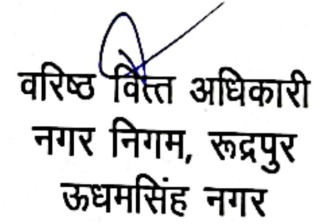 वरिष्ठ वित्त अधिकारी
नगर निगम, रूद्रपुर
ऊधमसिंह नगर